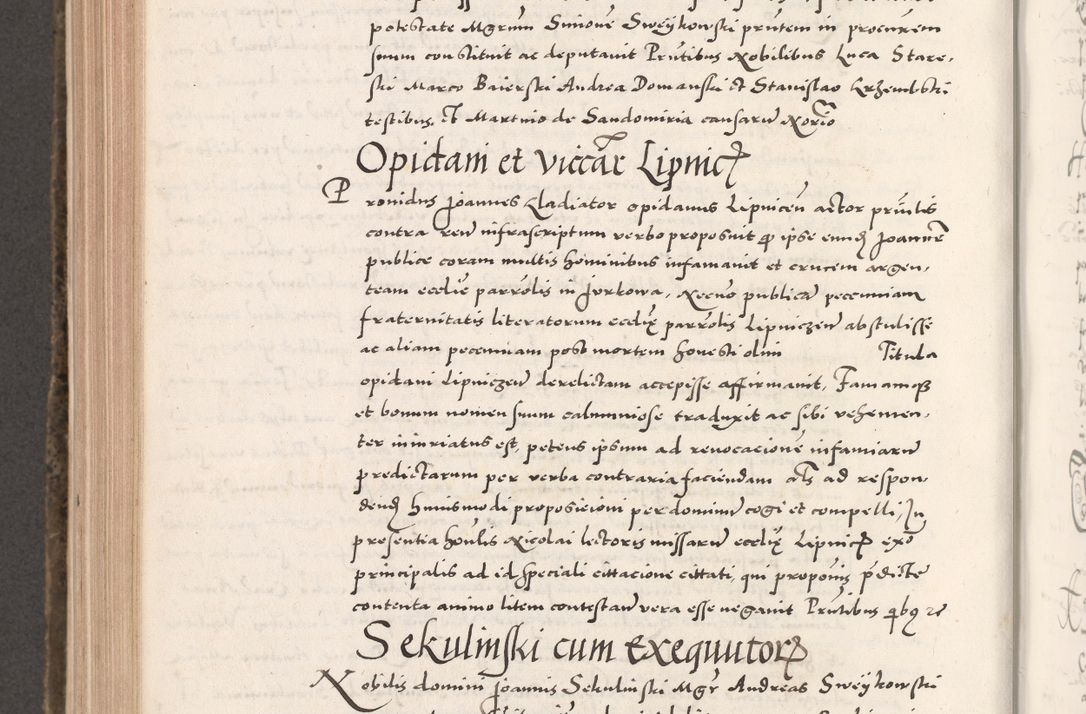 potestate Mgrum Simone Sweykowski prntem in procurem
suum constituit ac deputavit Prntibus Nobilibus Luca Stare-
ski Marco Baierski Andrea Domanski et Stanislao Krzembski
testibus, Et Martino de Sandomiria causaru Norio
Opidani et viccar Lipnic
Providus Joannes Kladiator opidanus Lipnicen actor prnlis
contra reu infrascriptum verbo proposuit q ipse eund Joanne
publice coram multis hominibus infamavit et crucem argen-
team ecclie parrolis in Jurkowa, Necno publica pecuniam
fraternitatis literatorum ecclie parrolis Lipniczen abstulisse
ac aliam pecuniam post mortem honesti olim Titula
opidani Lipniczen derelictam accepisse affirmavit, Famamq
et bonum nomen suum calumniose traduxit ac sibi vehemen-
ter iniuriatus est, petens ipsum ad revocacione infamiaru
predictarum per verba contraria faciendam als ad respon-
dend huiusmodi proposicioni per dominu cogi et compelli, In
presentia honlis Nicolai lectoris missaru ecclie Lipnic exo
principalis ad id speciali cittacione cittati, qui proponis pdicte
contenta animo litem contestan vera esse negavit Prntibus qbq re
Sekulinski cum Exequutor
Nobilis domini Joannis Sekulinski Mgr Andreas Sweykowski